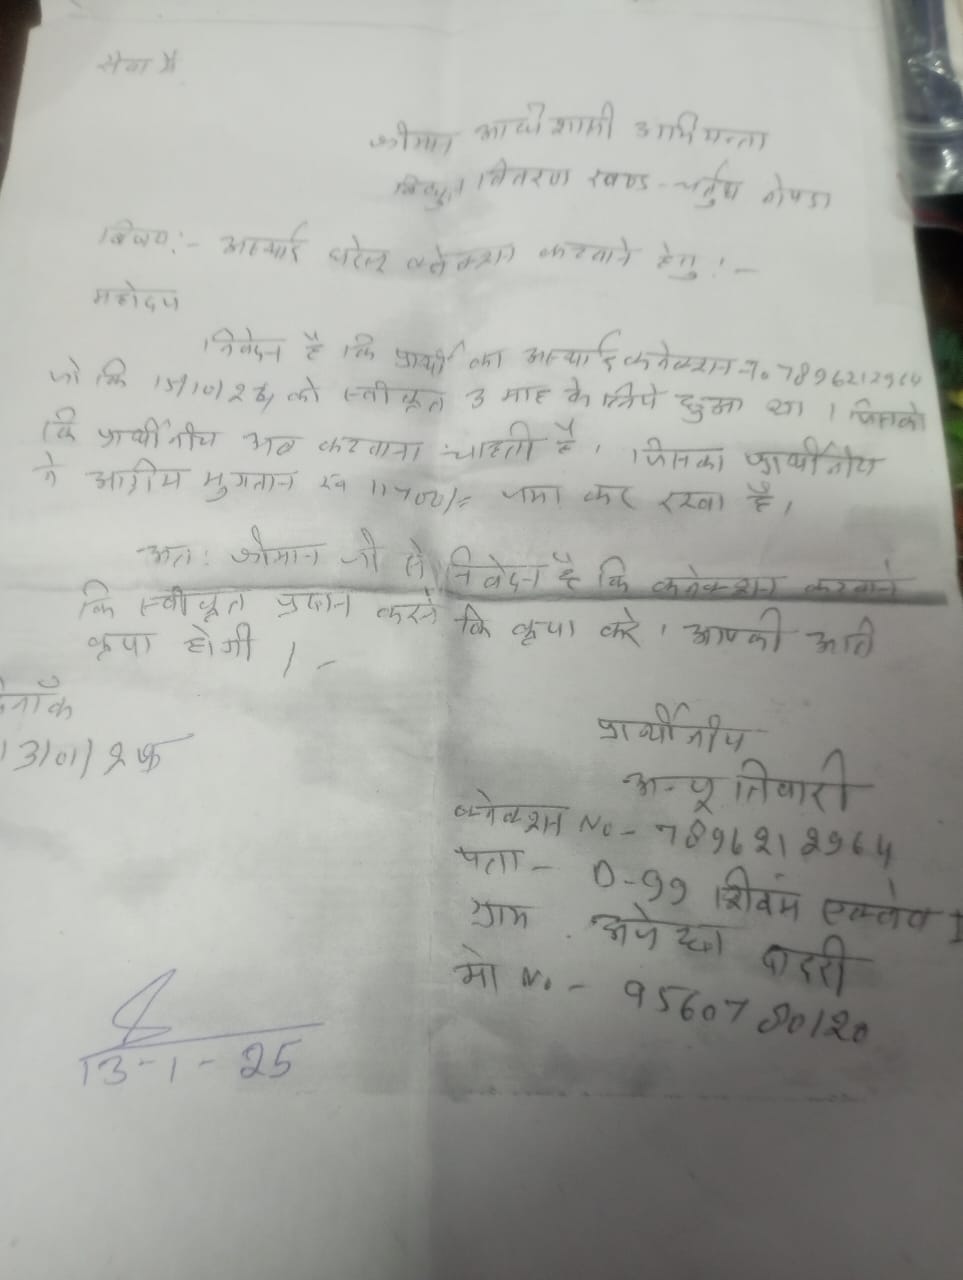 सेवा में
श्रीमान अधीशासी अभियन्ता
विद्युत वितरण खण्ड - चर्तुथ नोएडा
विषय:- अस्थाई घरेलू कनेक्शन करवाने हेतु :-
महोदय
निवेदन है कि प्रार्थी का अस्थाई कनेक्शन न० 7896212964
जो कि को स्वीकृत 3 माह के लिये हुआ था । जिसको
कि प्रार्थीनीय अब करवाना चाहती है । जिसका प्रार्थीनीय
ने अग्रीम भुगतान रू जमा कर रखा है ।
अतः श्रीमान जी से निवेदन है कि कनेक्शन करवाने
कि स्वीकृत प्रदान करने कि कृपा करे । आपकी अति
कृपा होगी । -
13/01/25
प्रार्थीनीय
अन्जू तिवारी
कनेक्शन No - 7896212964
पता - D-99 शिवम एन्क्लेव I
ग्राम दादरी
मो No - 9560780120
13-1-25